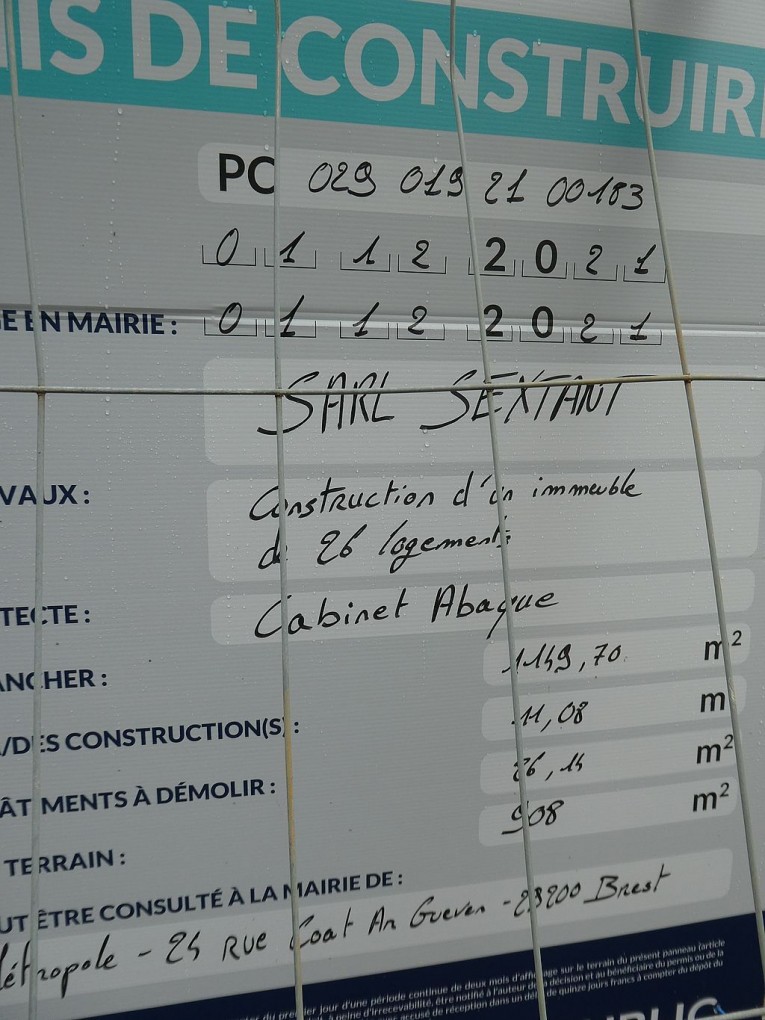 IS DE CONSTRUIR
PC 029 019 21 00183
01 12 2021
E EN MAIRIE : 01 12 2021
SARL SEXTANT
VAUX : Construction d'un immeuble
de 26 logements
TECTE : Cabinet Abaque
ANCHER : 1149,70 m²
/DES CONSTRUCTION(S) : 11,08 m
ÂTIMENTS À DÉMOLIR : 26,14 m²
TERRAIN : 908 m²
UT ÊTRE CONSULTÉ À LA MAIRIE DE :
Métropole - 24 RUE Coat An Gueven - 29200 Brest
er du premier jour d'une période continue de deux mois d'affichage sur le terrain du présent panneau (article
à peine d'irrecevabilité, être notifié à l'auteur de la décision et au bénéficiaire du permis ou de la
accusé de réception dans un délai de quinze jours francs à compter du dépôt du